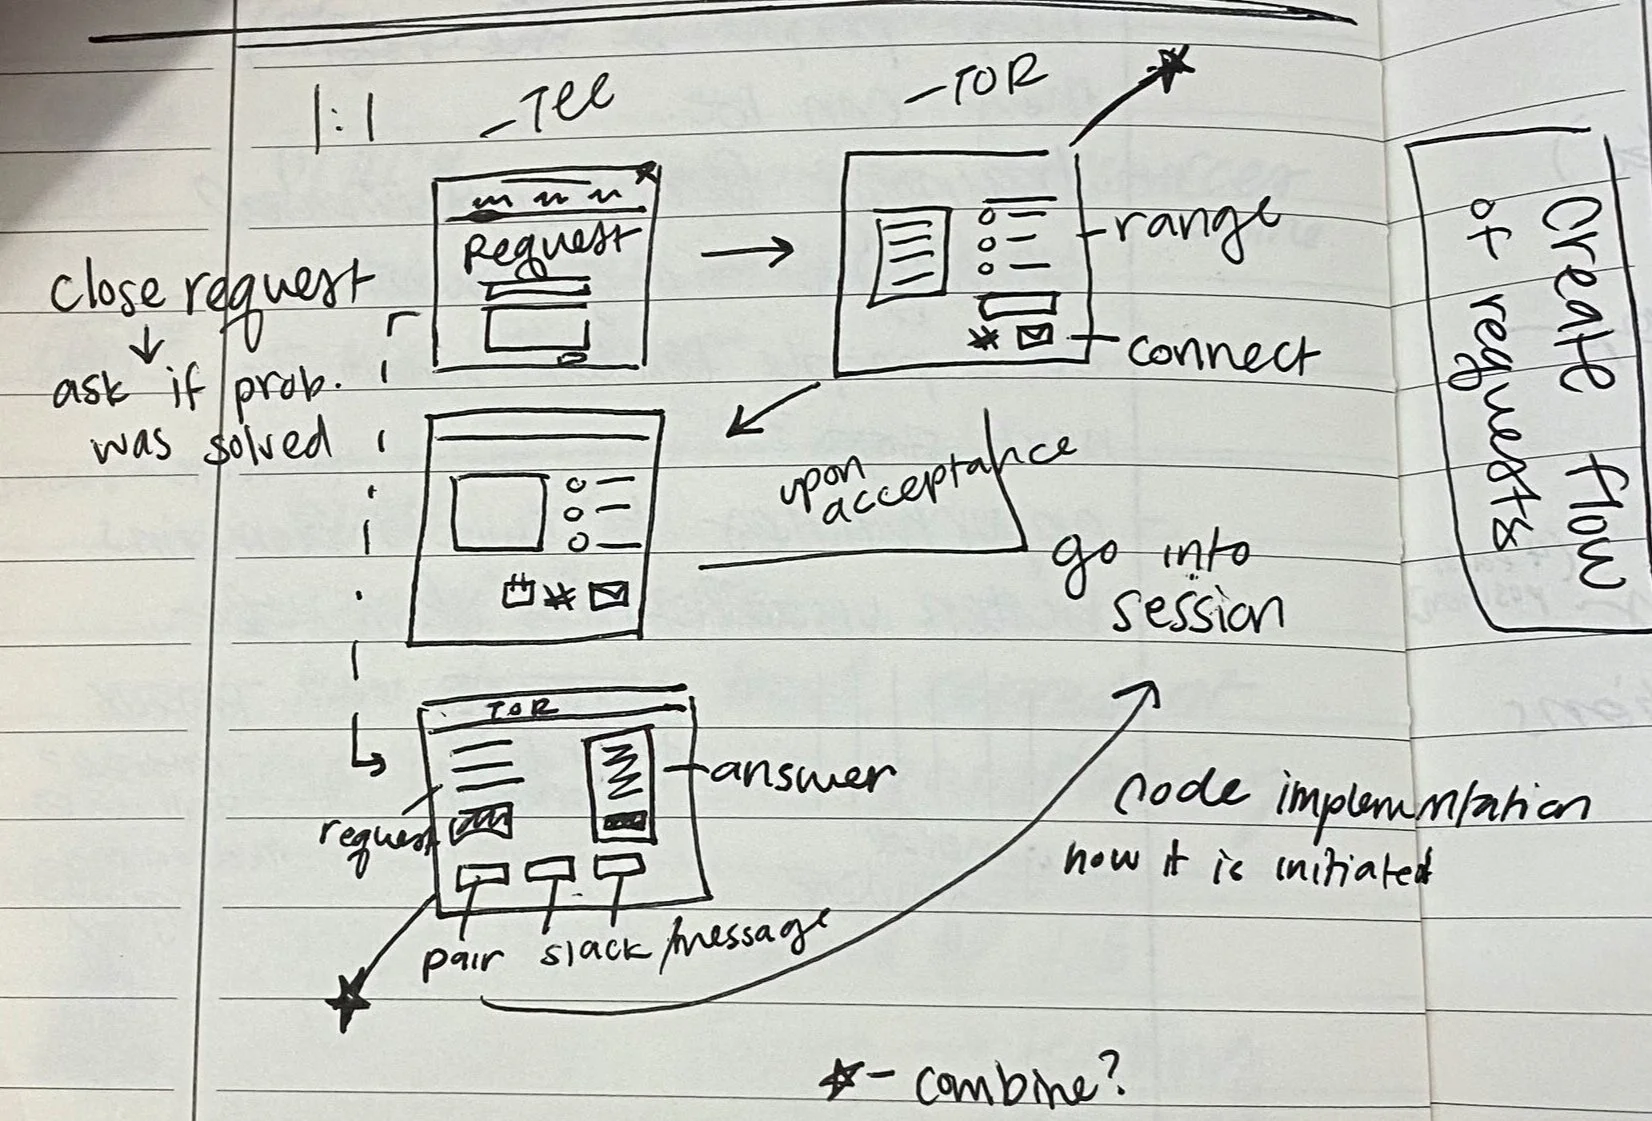 1:1
-Tee
-TOR
Request
range
connect
close request
ask if prob.
was solved
upon
acceptance
go into
session
TOR
request
answer
pair
slack/message
node implementation
how it is initiated
★ - combine?
Create flow
of requests